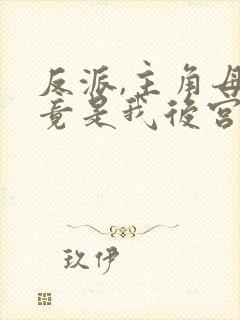 反派,主角母
竟是我後宮
玖伊